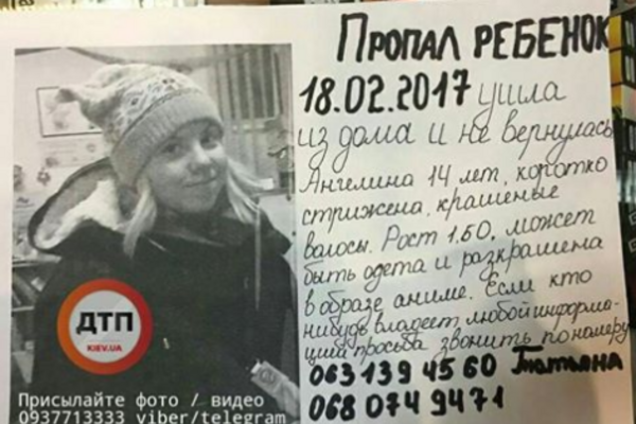 ПРОПАЛ РЕБЕНОК
18.02.2017 ушла
из дома и не вернулась
Ангелина 14 лет, коротко
стрижена, крашеные
волосы. Рост 1.60, может
быть одета и разкрашена
в образе аниме. Если кто
нибудь владеет любой информа-
ций просьба звонить по номеру
063 139 45 60 Татьяна
068 074 94 71
ДТП
KIEV.UA
Присылайте фото / видео
0937713333 viber/telegram